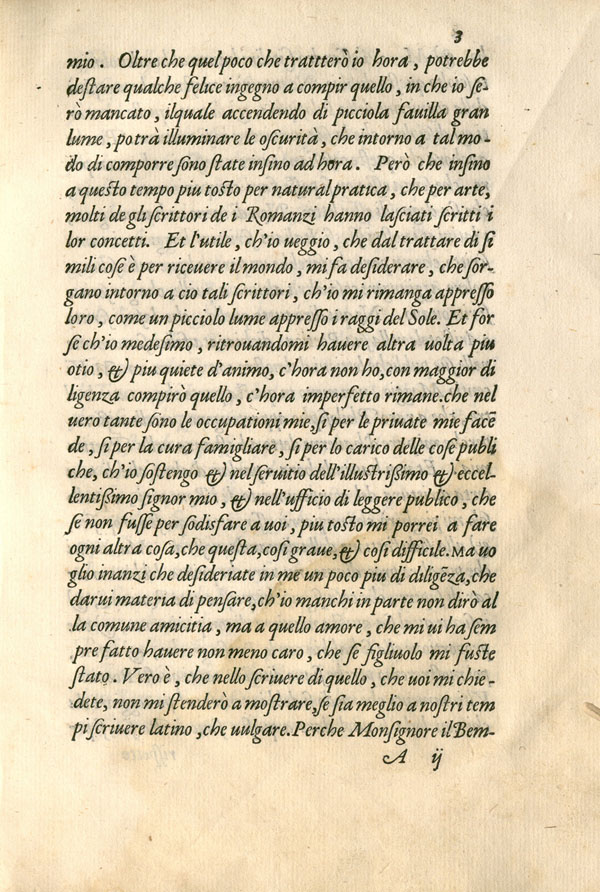 3
mio. Oltre che quel poco che trattterò io hora, potrebbe
destare qualche felice ingegno a compir quello, in che io se-
rò mancato, ilquale accendendo di picciola fauilla gran
lume, potrà illuminare le oscurità, che intorno a tal mo-
do di comporre sono state insino ad hora. Però che insino
a questo tempo piu tosto per natural pratica, che per arte,
molti de gli scrittori de i Romanzi hanno lasciati scritti i
lor concetti. Et l'utile, ch'io ueggio, che dal trattare di si
mili cose è per riceuere il mondo, mi fa desiderare, che sor-
gano intorno a cio tali scrittori, ch'io mi rimanga appresso
loro, come un picciolo lume appresso i raggi del Sole. Et for
se ch'io medesimo, ritrouandomi hauere altra uolta piu
otio, & piu quiete d'animo, c'hora non ho, con maggior di
ligenza compirò quello, c'hora imperfetto rimane. che nel
uero tante sono le occupationi mie, si per le priuate mie facē
de, si per la cura famigliare, si per lo carico delle cose publi
che, ch'io sostengo & nel seruitio dell'illustrißimo & eccel-
lentißimo signor mio, & nell'ufficio di leggere publico, che
se non fusse per sodisfare a uoi, piu tosto mi porrei a fare
ogni altra cosa, che questa, cosi graue, & cosi difficile. Ma uo
glio inanzi che desideriate in me un poco piu di diligēza, che
darui materia di pensare, ch'io manchi in parte non dirò al
la comune amicitia, ma a quello amore, che mi ui ha sem
pre fatto hauere non meno caro, che se figliuolo mi fuste
stato. Vero è, che nello scriuere di quello, che uoi mi chie-
dete, non mi stenderò a mostrare, se sia meglio a nostri tem
pi scriuere latino, che uulgare. Perche Monsignore il Bem-
A ij